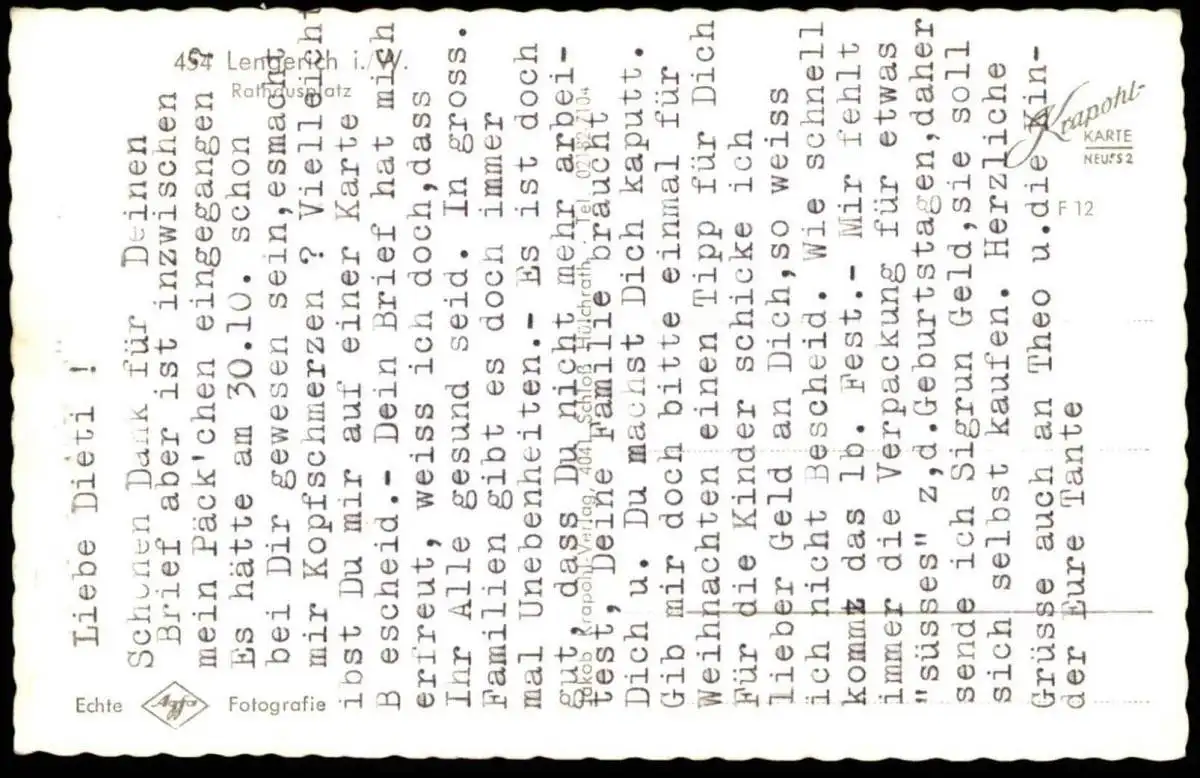 454 Lengerich i./W.
Rathausplatz
Krapohl-
KARTE
NEUSS 2
F 12
Echte
Agfa
Fotografie
Jakob Krapohl-Verlag, 4041 Schloß Hülchrath, Tel. 02182-7104
Liebe Dieti !
Schönen Dank für Deinen
Brief aber ist inzwischen
mein Päck'chen eingegangen ?
Es hätte am 30.10. schon
bei Dir gewesen sein,esmacht
mir Kopfschmerzen ? Vielleicht
ibst Du mir auf einer Karte
B escheid.- Dein Brief hat mich
erfreut, weiss ich doch,dass
Ihr Alle gesund seid. In gross.
Familien gibt es doch immer
mal Unebenheiten.- Es ist doch
gut, dass Du nicht mehr arbei-
test, Deine Familie braucht
Dich u. Du machst Dich kaputt.
Gib mir doch bitte einmal für
Weihnachten einen Tipp für Dich
Für die Kinder schicke ich
lieber Geld an Dich,so weiss
ich nicht Bescheid. Wie schnell
kommt das lb. Fest.- Mir fehlt
immer die Verpackung für etwas
"süsses" z,d.Geburtstagen,daher
sende ich Sigrun Geld,sie soll
sich selbst kaufen. Herzliche
Grüsse auch an Theo u.die Kin-
der Eure Tante